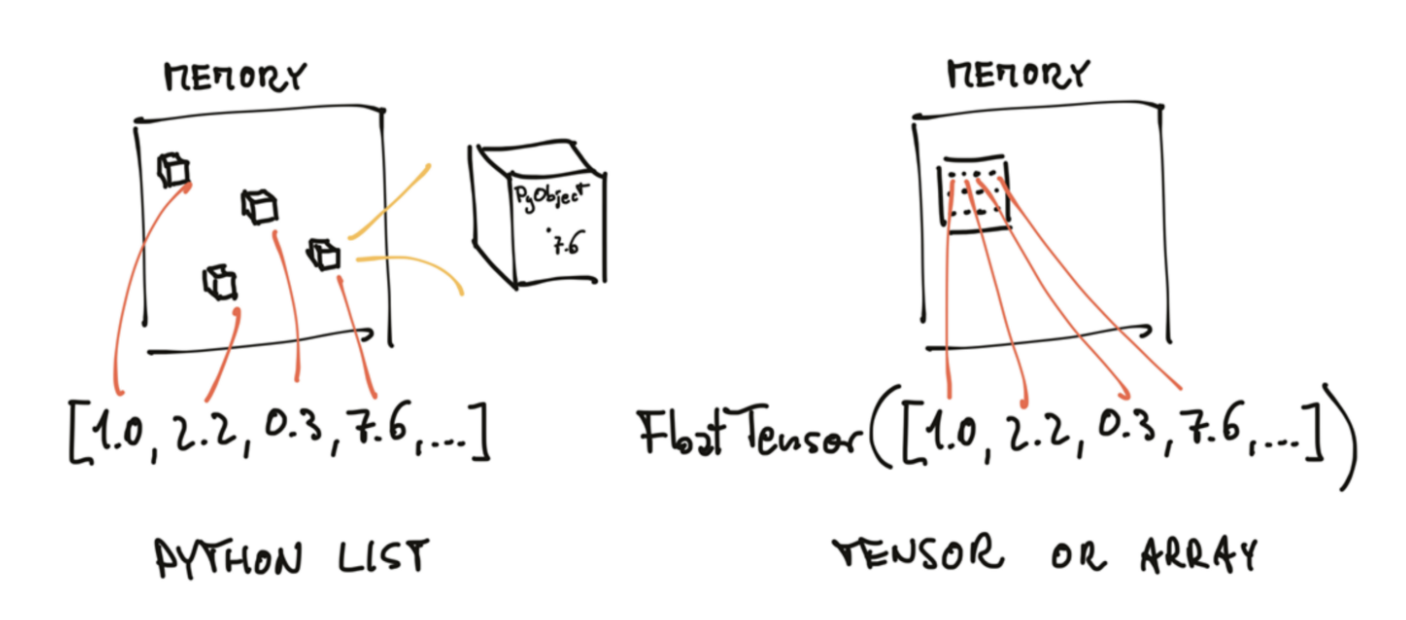 MEMORY
PyObject
7.6
[1.0, 2.2, 0.3, 7.6, ....]
PYTHON LIST
MEMORY
FloatTensor([1.0, 2.2, 0.3, 7.6, ....])
TENSOR OR ARRAY